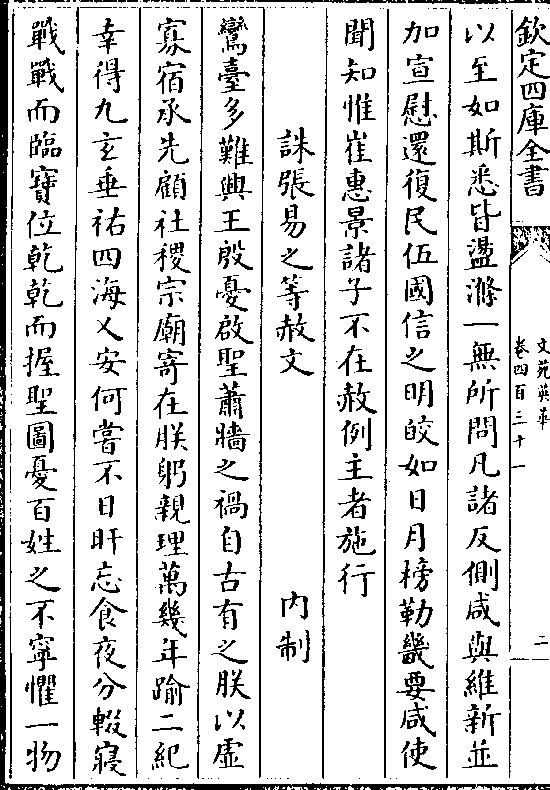 欽定四庫全書
文苑英華
卷四百三十一
二
以至如斯悉皆盪滌一無所問凡諸反側咸與維新並
加宣慰還復民伍國信之明皎如日月榜勒畿要咸使
聞知惟崔惠景諸子不在赦例主者施行
誅張易之等赦文 內制
鸞臺多難興王殷憂啟聖蕭牆之禍自古有之朕以虛
寡宿承先顧社稷宗廟寄在朕躬親理萬幾年踰二紀
幸得九玄垂祐四海乂安何嘗不日旰忘食夜分輟寢
戰戰而臨寶位乾乾而握聖圖憂百姓之不寧懼一物